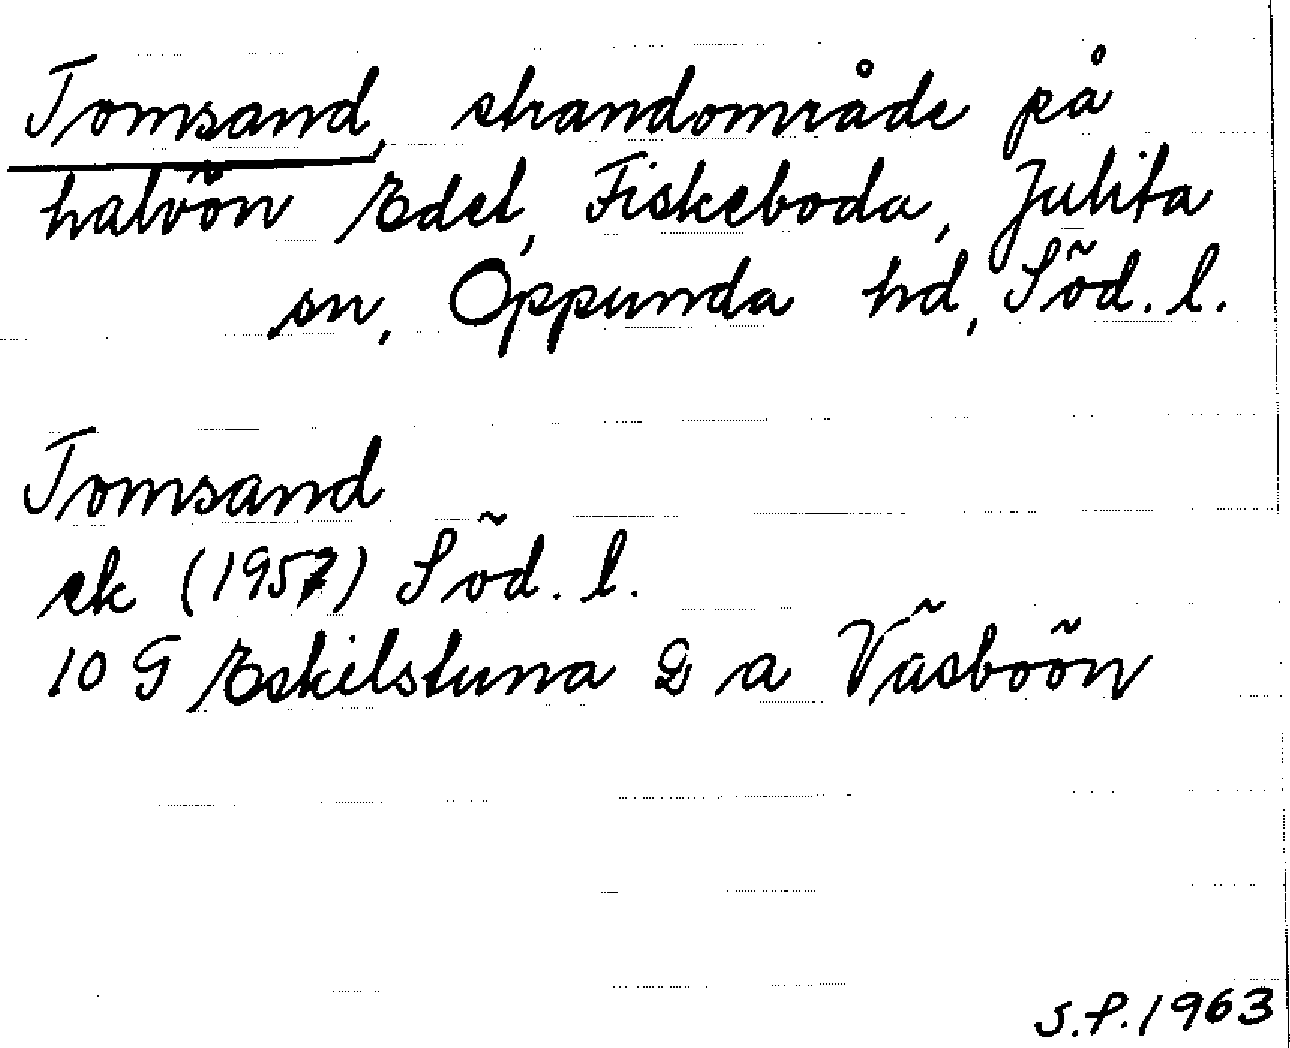 Tomsand, strandområde på
halvön Edet, Fiskeboda, Julita
sn, Oppunda hd, Söd. l.
Tomsand
ek (1957) Söd. l.
10 G Eskilstuna 2 a Väsböön
S.P. 1963